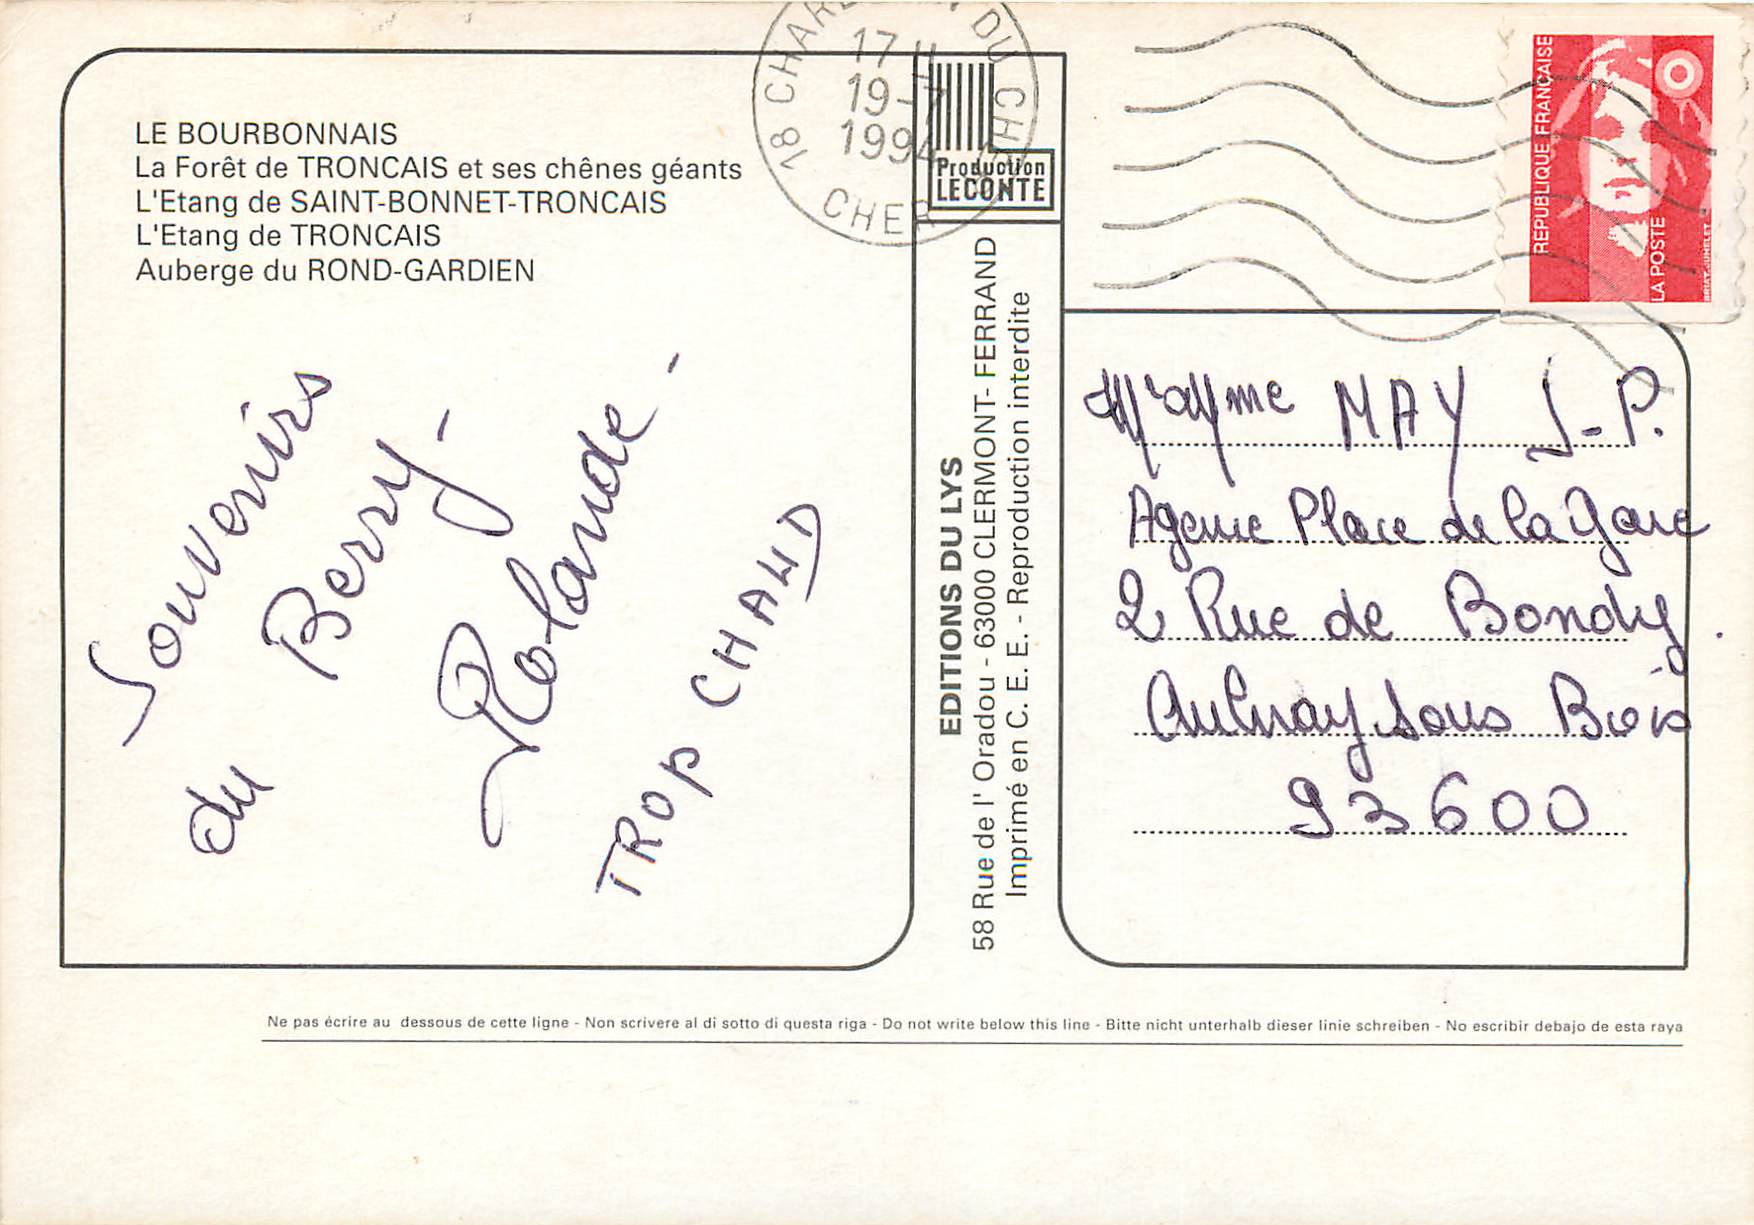 LE BOURBONNAIS
La Forêt de TRONCAIS et ses chênes géants
L'Etang de SAINT-BONNET-TRONCAIS
L'Etang de TRONCAIS
Auberge du ROND-GARDIEN
Souvenirs
du Berry -
Rolande -
TROP CHAUD
18 DU CHER
17 H
19-7
1994
CHER
Production
LECONTE
EDITIONS DU LYS
58 Rue de l'Oradou - 63000 CLERMONT-FERRAND
Imprimé en C. E. E. - Reproduction interdite
REPUBLIQUE FRANÇAISE
LA POSTE
BRIAT-JUMELET
M. Mme MAY J-P.
Agence Place de la Gare
2 Rue de Bondy.
Aulnay sous Bois
93600
Ne pas écrire au dessous de cette ligne - Non scrivere al di sotto di questa riga - Do not write below this line - Bitte nicht unterhalb dieser linie schreiben - No escribir debajo de esta raya